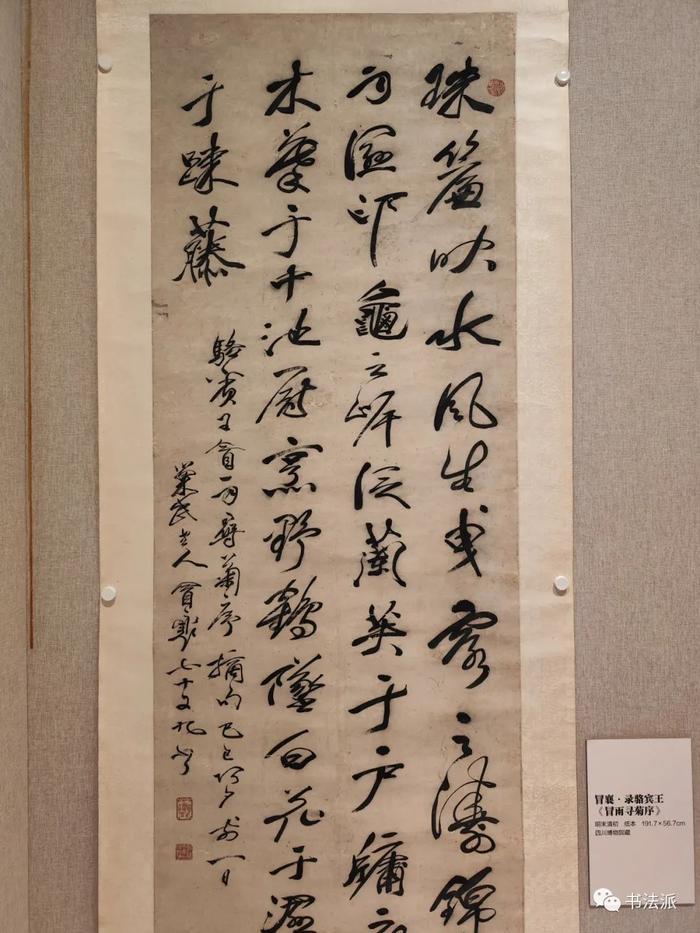 珠簾映水風生曳露之濤錦
雨溼印龜之岸泛蘭英于户牖
木葉于中池厨烹野鶴墜白花于濕
于疎藤
駱賓王冒雨尋菊序 摘句 己巳 前一日
巢民老人冒襄七十又九書
冒襄·录骆宾王
《冒雨寻菊序》
明末清初 纸本 191.7×56.7cm
四川博物院藏
书法派